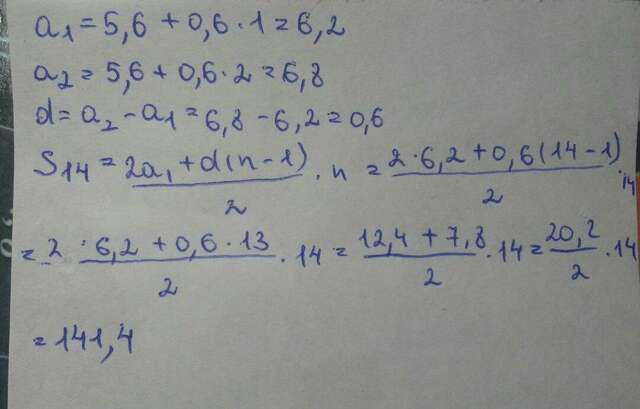 a₁ = 5,6 + 0,6 · 1 = 6,2
a₂ = 5,6 + 0,6 · 2 = 6,8
d = a₂ - a₁ = 6,8 - 6,2 = 0,6
S₁₄ = (2a₁ + d(n-1))/2 · n = (2 · 6,2 + 0,6(14-1))/2 · 14
= (2 · 6,2 + 0,6 · 13)/2 · 14 = (12,4 + 7,8)/2 · 14 = 20,2/2 · 14
= 141,4